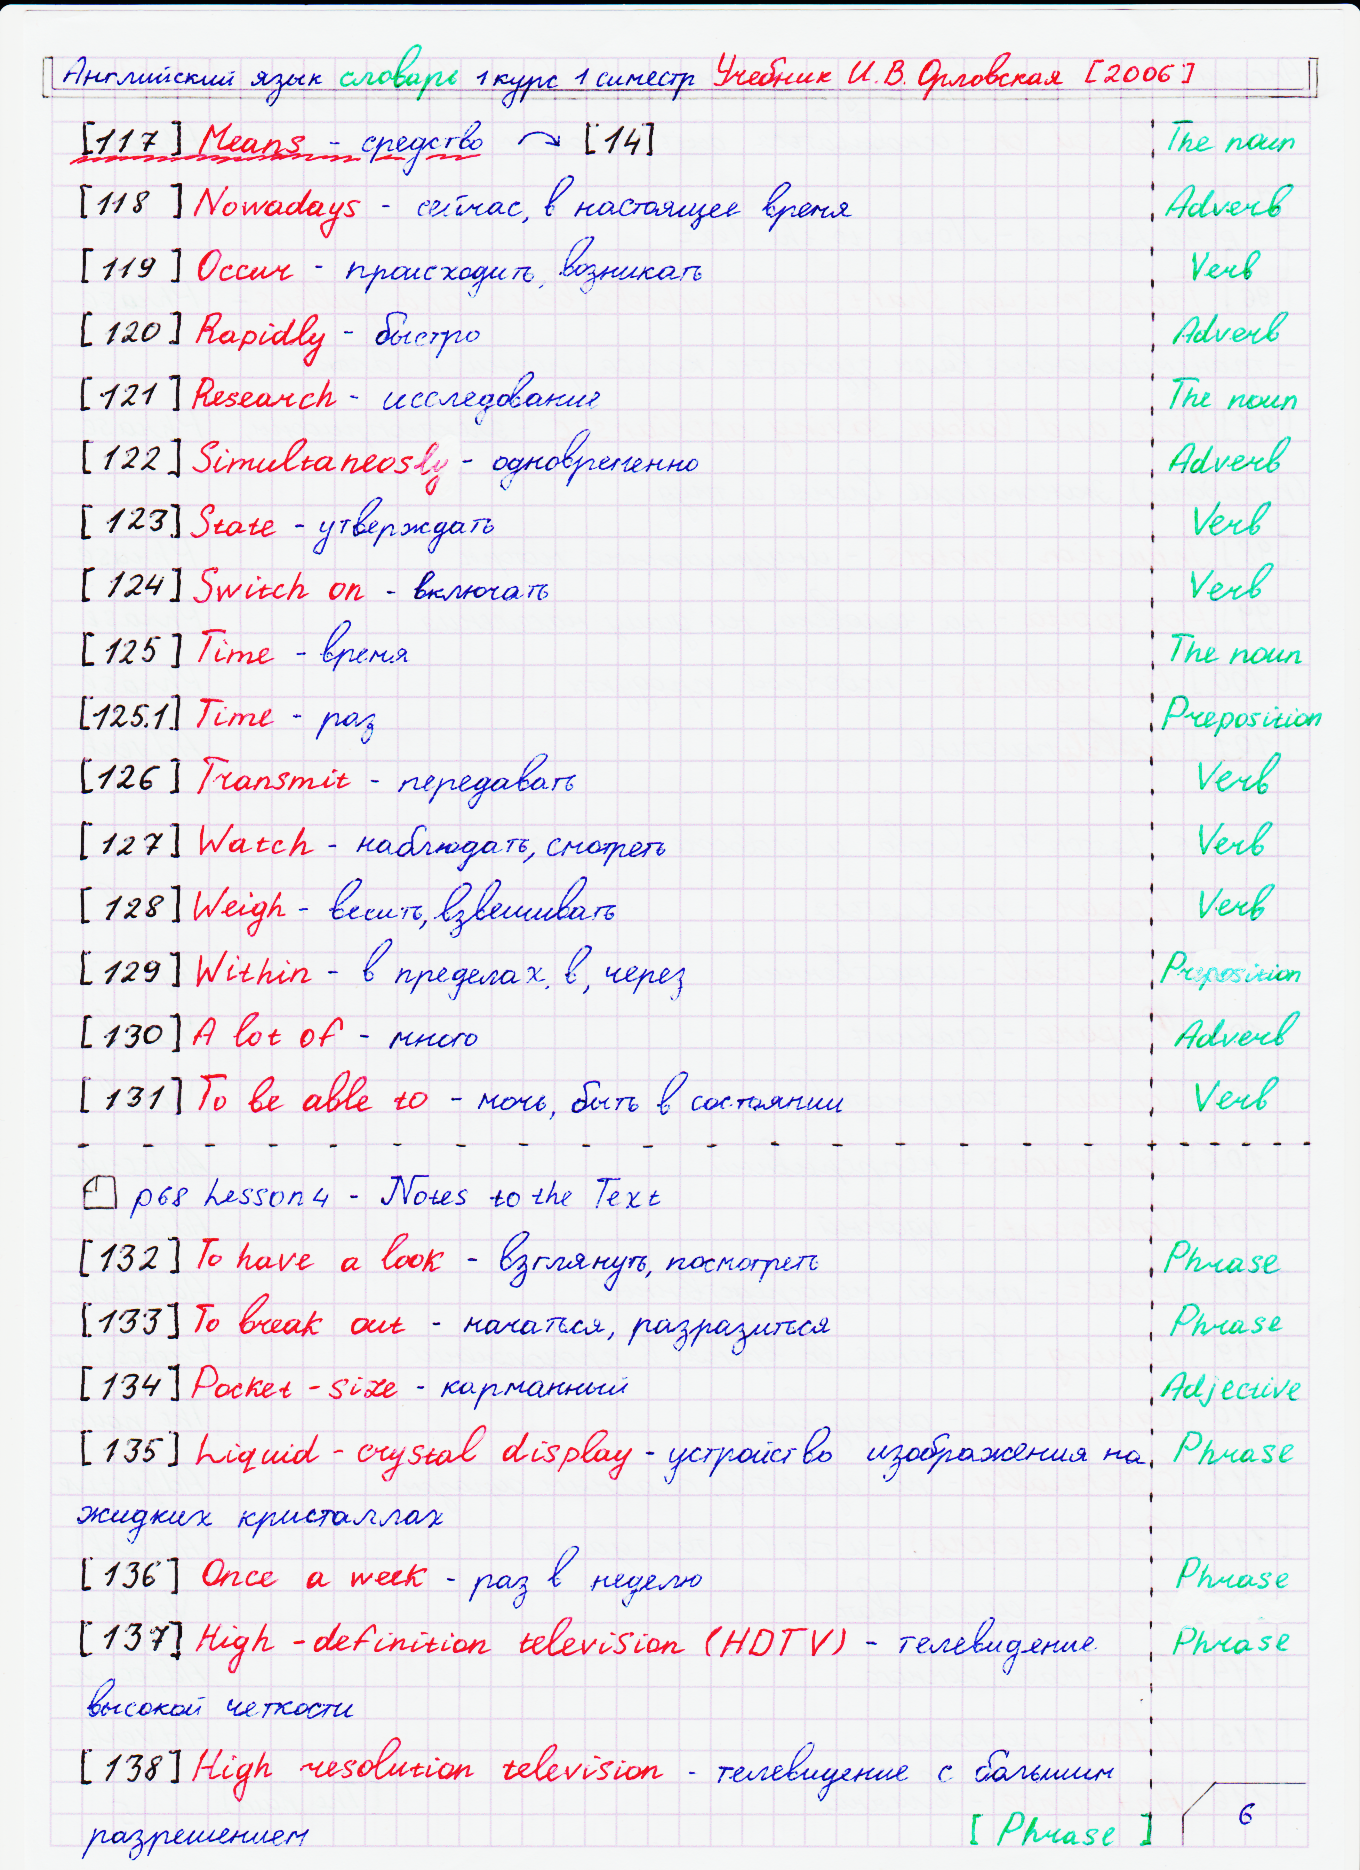 Английский язык словарь 1 курс 1 симестр Учебник И.В. Орловская [2006]
[117] Means - средство → [14] The noun
[118] Nowadays - сейчас, в настоящее время Adverb
[119] Occur - происходить, возникать Verb
[120] Rapidly - быстро Adverb
[121] Research - исследование The noun
[122] Simultaneosly - одновременно Adverb
[123] State - утверждать Verb
[124] Switch on - включать Verb
[125] Time - время The noun
[125.1] Time - раз Preposition
[126] Transmit - передавать Verb
[127] Watch - наблюдать, смотреть Verb
[128] Weigh - весить, взвешивать Verb
[129] Within - в пределах, в, через Preposition
[130] A lot of - много Adverb
[131] To be able to - мочь, быть в состоянии Verb
p68 Lesson 4 - Notes to the Text
[132] To have a look - взглянуть, посмотреть Phrase
[133] To break out - начаться, разразиться Phrase
[134] Pocket-size - карманный Adjective
[135] Liquid-crystal display - устройство изображения на Phrase
жидких кристаллах
[136] Once a week - раз в неделю Phrase
[137] High-definition television (HDTV) - телевидение Phrase
высокой четкости
[138] High resolution television - телевидение с большим
разрешением [Phrase] 6